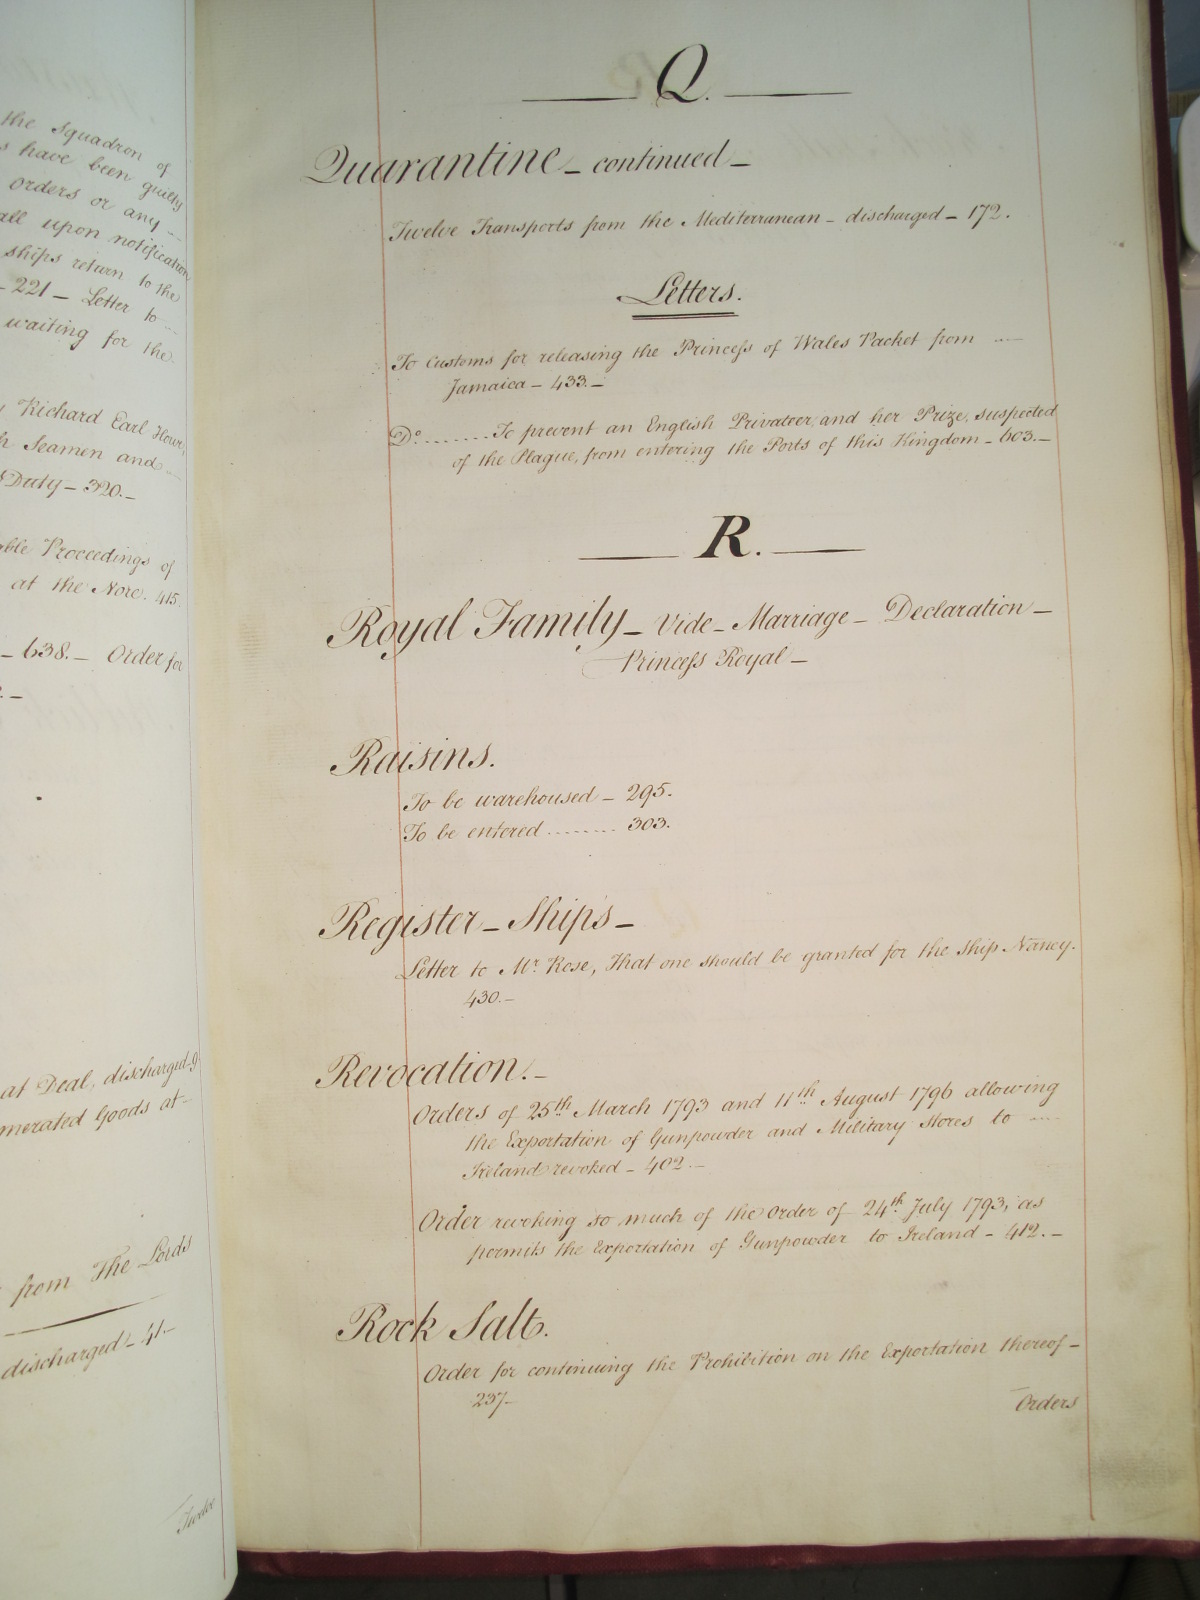 the Squadron of
have been guilty
orders or any
all upon notification
ships return to the
221 – Letter to
waiting for the
Richard Earl Howe
Seamen and
Duty – 320. –
Proceedings of
at the Nore. 415.
– 638. – Order for
at Deal, discharged. 9
Goods at –
from The Lords
discharged – 41 –
Twelve
Q.
Quarantine – continued –
Twelve Transports from the Mediterranean – discharged – 172.
Letters.
To Customs for releasing the Princess of Wales Packet from
Jamaica – 433. –
Do ........ To prevent an English Privateer, and her Prize, suspected
of the Plague, from entering the Ports of this Kingdom – 603. –
R.
Royal Family – vide – Marriage – Declaration –
Princess Royal –
Raisins.
To be warehoused – 295.
To be entered ........ 303.
Register – Ship's –
Letter to Mr. Rose, That one should be granted for the Ship Nancy.
430. –
Revocation. –
Orders of 25th March 1793 and 11th August 1796 allowing
the Exportation of Gunpowder and Military Stores to
Ireland revoked – 402. –
Order revoking so much of the Order of 24th July 1793, as
permits the Exportation of Gunpowder to Ireland – 412. –
Rock Salt.
Order for continuing the Prohibition on the Exportation thereof –
237 –
Orders